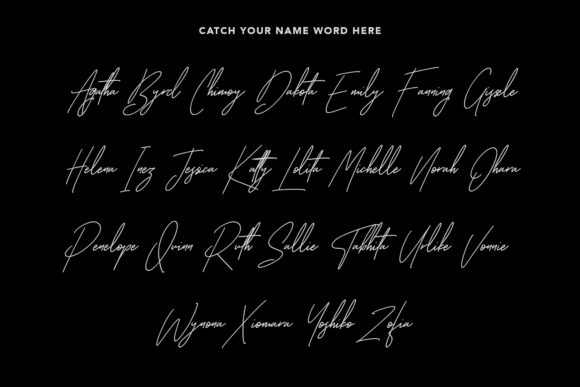 CATCH YOUR NAME WORD HERE
Agatha Byrd Chimoy Dakota Emily Fanning Gissele
Helena Inez Jessica Katty Lolita Michelle Norah Ohara
Penelope Quinn Ruth Sallie Tabhita Urlike Vonnie
Wynona Xiomara Yoshiko Zofia